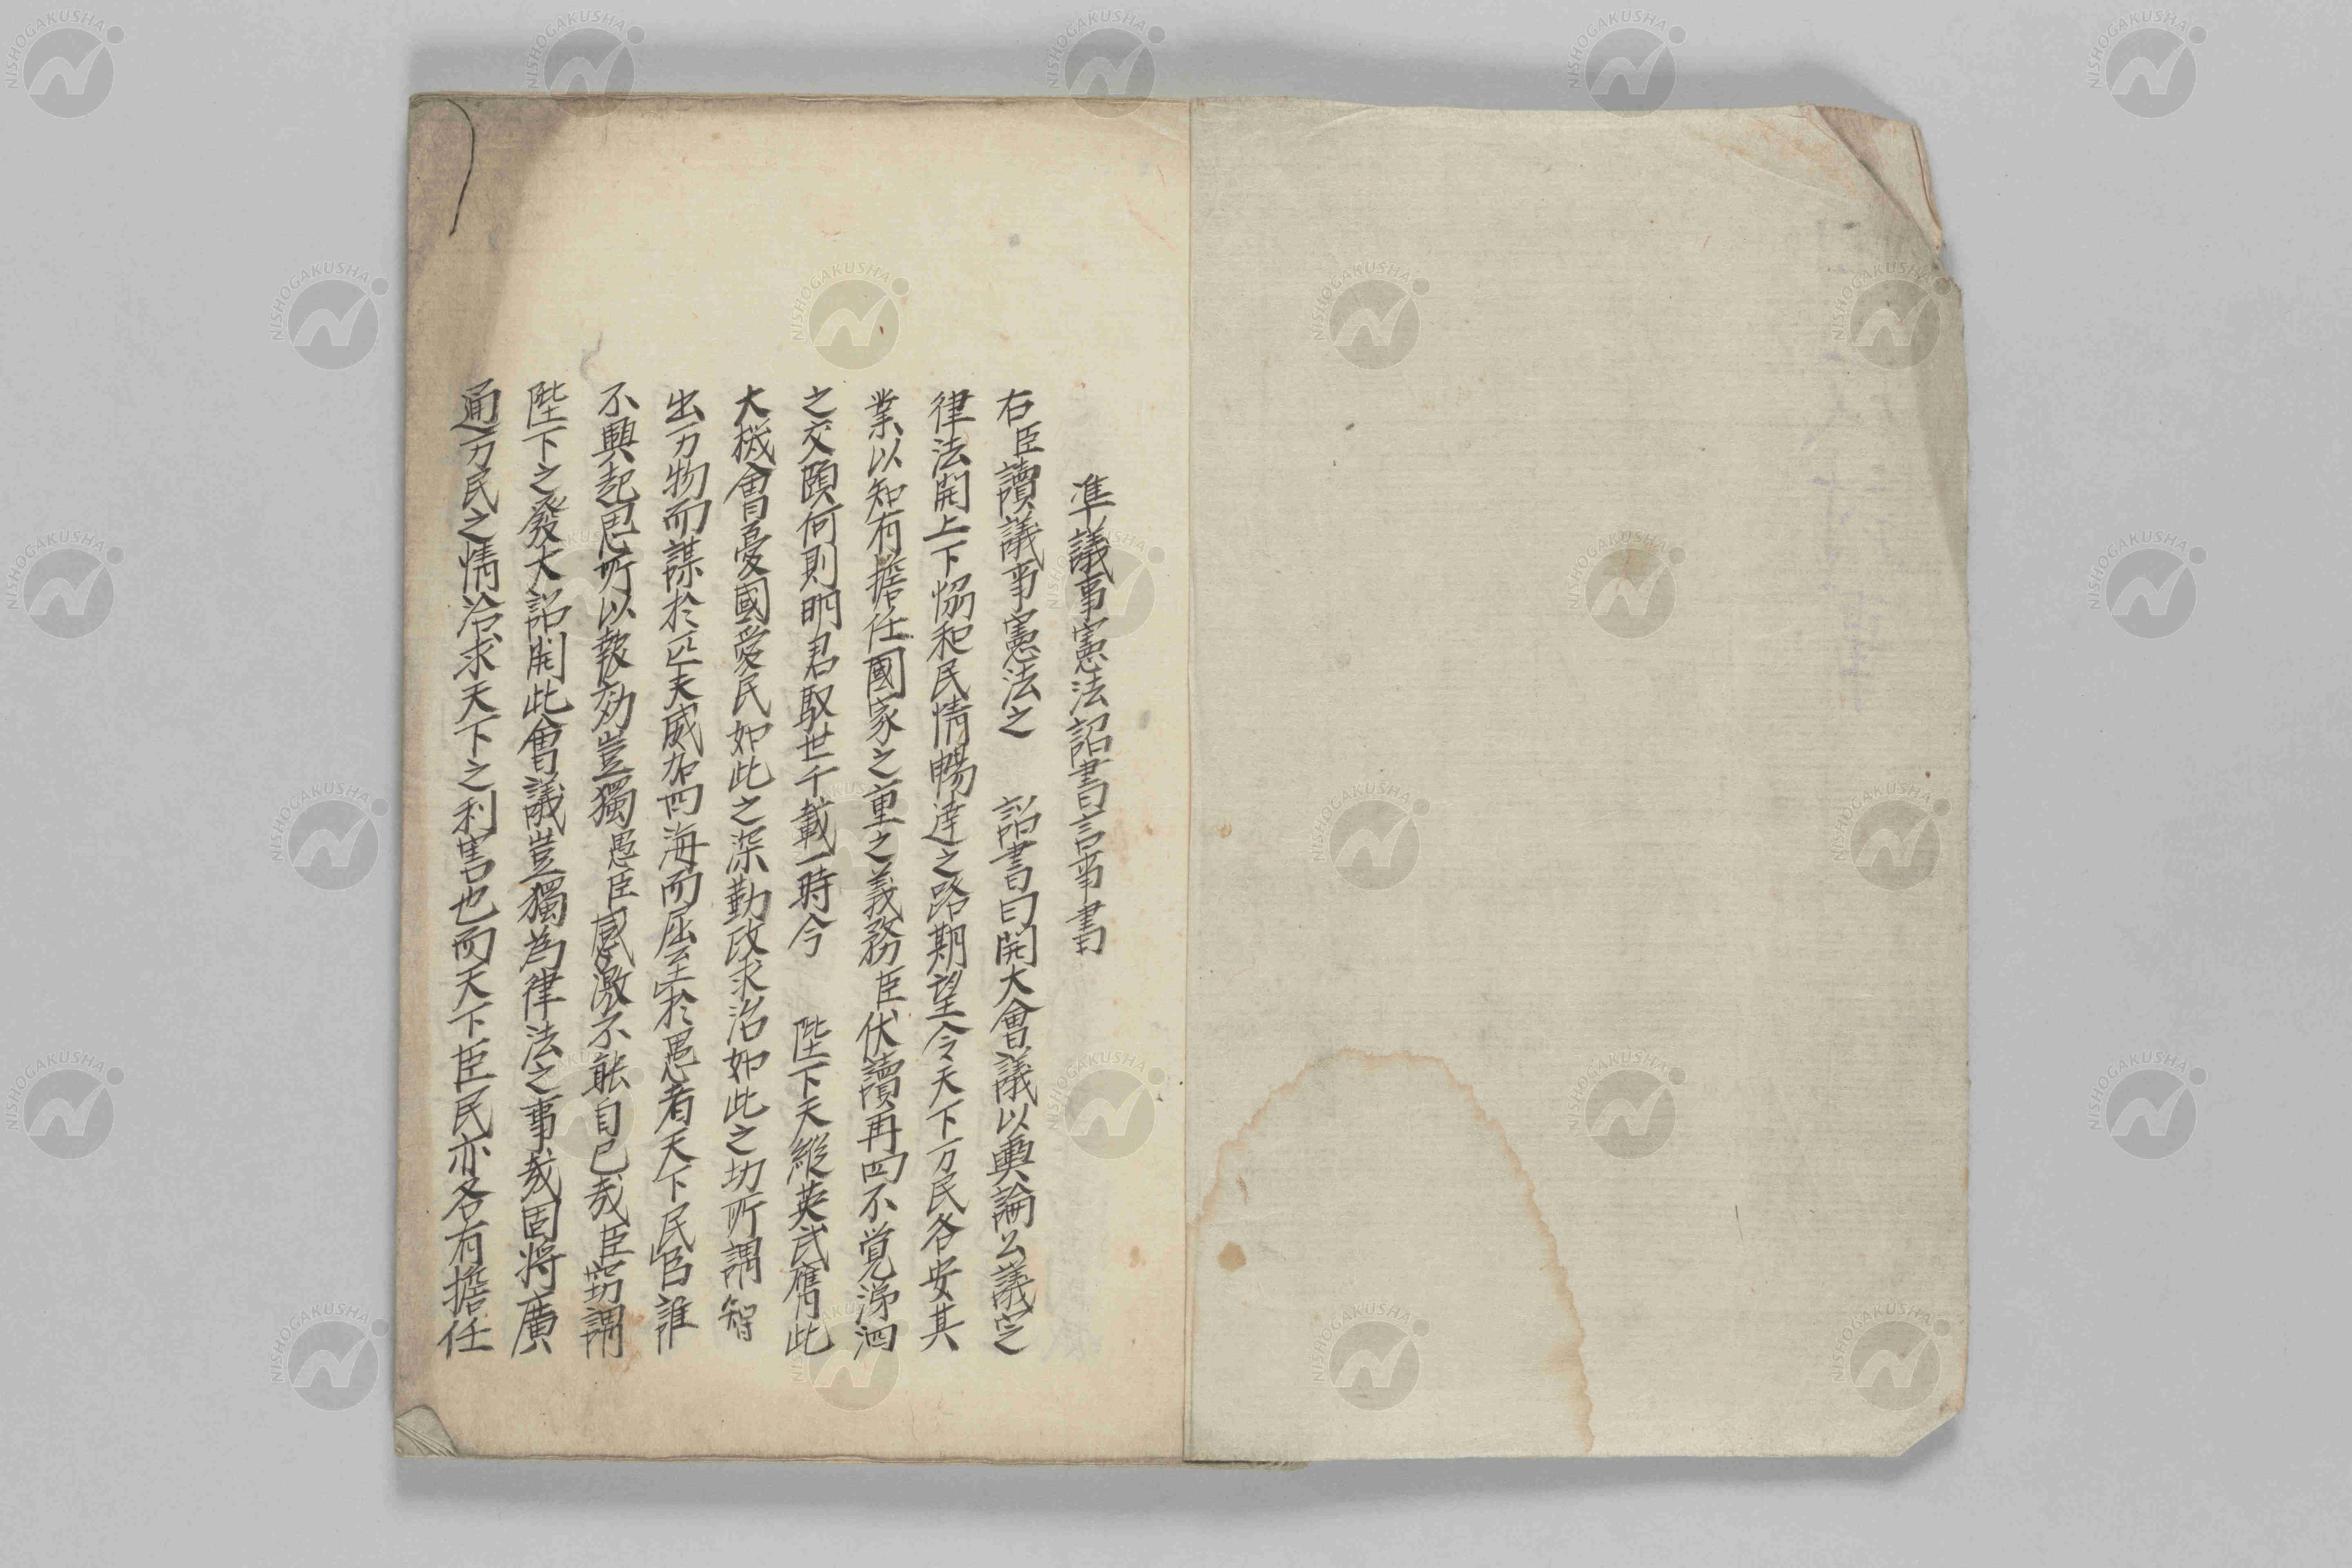 準議事憲法詔書言事書
右臣讀議事憲法之　詔書曰開大會議以輿論公議定
律法開上下恊和民情暢達之路期望今天下万民各安其
業以知有擔任國家之重之義務臣伏讀再四不覚涕泗
之交頤何則明君馭世千載一時今　陛下天縦英武膺此
大機會憂國愛民如此之深勤政求治如此之切所謂智
出万物而謀於匹夫威加四海而屈至於愚者天下民臣誰
不興起思所以報効豈獨愚臣感激不能自已哉臣窃謂
陛下之發大詔開此會議豈獨為律法之事哉固将廣
通万民之情洽求天下之利害也而天下臣民亦各有擔任
NISHOGAKUSHA